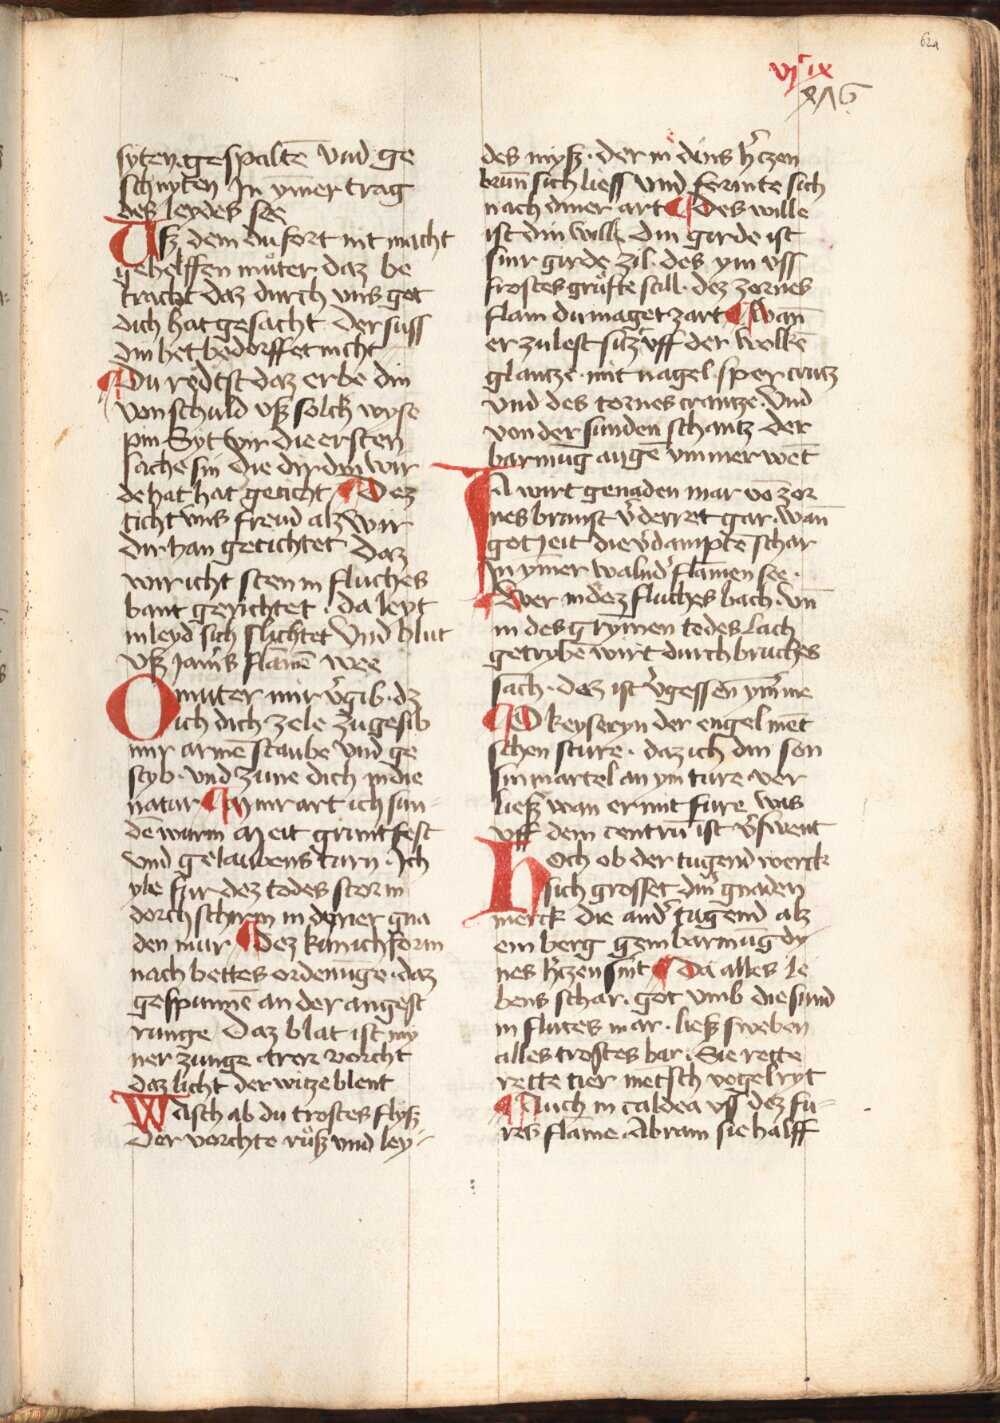 624
vjc ix
syten gespaltē vnd ge
schnyten In ymer trag
des leydes see
Usz dem du fort nit macht
gehelffen muͦter daz be
tracht daz durch vns got
dich hat gesacht der suss
din het bedorffet nicht
Du redest daz erbe din
von schuld vsz solch wyse
pin Syt wir die ersten
sache sin die dir din wir
de hat hat geticht Dez
ticht vns freud alz wir
dir han getichtet Daz
wir icht sten in fluches
bant gerichtet . da leyt
in leyd sich slichtet vnd blut
vsz jamers flamē wee
O muter mir v̓gib . dz
ich dich zele zu gesib
mir arme staube vnd ge
styb . vnd zune dich in die
natur In mir art ich sun
dē wurm meit grunt fest
vnd gelaubens turn . Ich
yle fur dez todes storm
dorch schirm in deyner gna
den mur Dez kunich form
nach bettes ordenūge . daz
gespunnē an der angest
runge Daz blat ist my
ner zunge vorcht
daz licht der witze blent
WAsch ab du trostes flysz
der vorchte ruͦsz vnd ley
des mysz . der in deins h̓tzen
brun sich liess vnd formte sich
nach diner art Des wille
ist din will Din girde ist
sinr girde zil . des ym vss
frostes gruͦfte still . dez zornes
flam du maget zart Wan
er zulest sitz vff der wolkē
glantze . mit nagel . sper crutz
vnd des tornes crantze . vnd
von der sunden schantz der
barmūg augē ymmer wēt
DA wirt genaden mar vō zor
nes brunst v̓derret gar . wan̄
gotheit die v̓dampte schar
In ymer walnd̓ flamen see .
Wer in dez fluches bach . vn̄
in des grymen todes lach
getrybē wirt durch bruches
sach . dez ist v̓gessen ym̄me
O keyseryn der engel mēt
schen sture . daz ich din son
sin martel an ym ture ver
liesz wan er mit fure was
vff dem centrū ist v̓swent
hOch ob der tugend werck
sich grosset din̓ gnaden
merck die and̓ tugend alz
ein berg gem barmūg dy
nes h̓tzen sint Da alles le
bens schar . got vmb die sund
in flutes mar . liesz sweben
alles trostes bar . Sie rette
rette tier mētsch vogel ryt
Auch in caldea vss dez fu
res flame . Abram sie halff